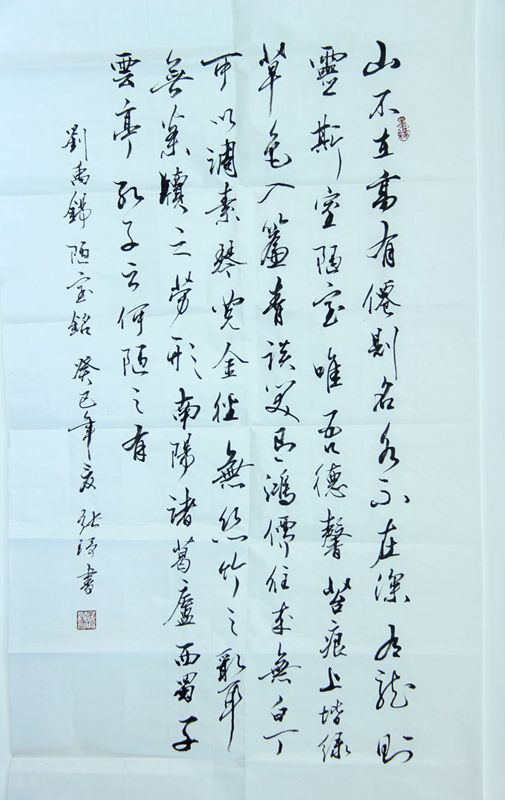 山不在高有僊則名水不在深有龍則
靈斯室陋室唯吾德馨苔痕上堦綠
草色入簾青談笑有鴻儒往來無白丁
可以調素琴閱金經無絲竹之亂耳
無案牘之勞形南陽諸葛廬西蜀子
雲亭孔子云何陋之有
劉禹錫陋室銘 癸巳年夏 張書